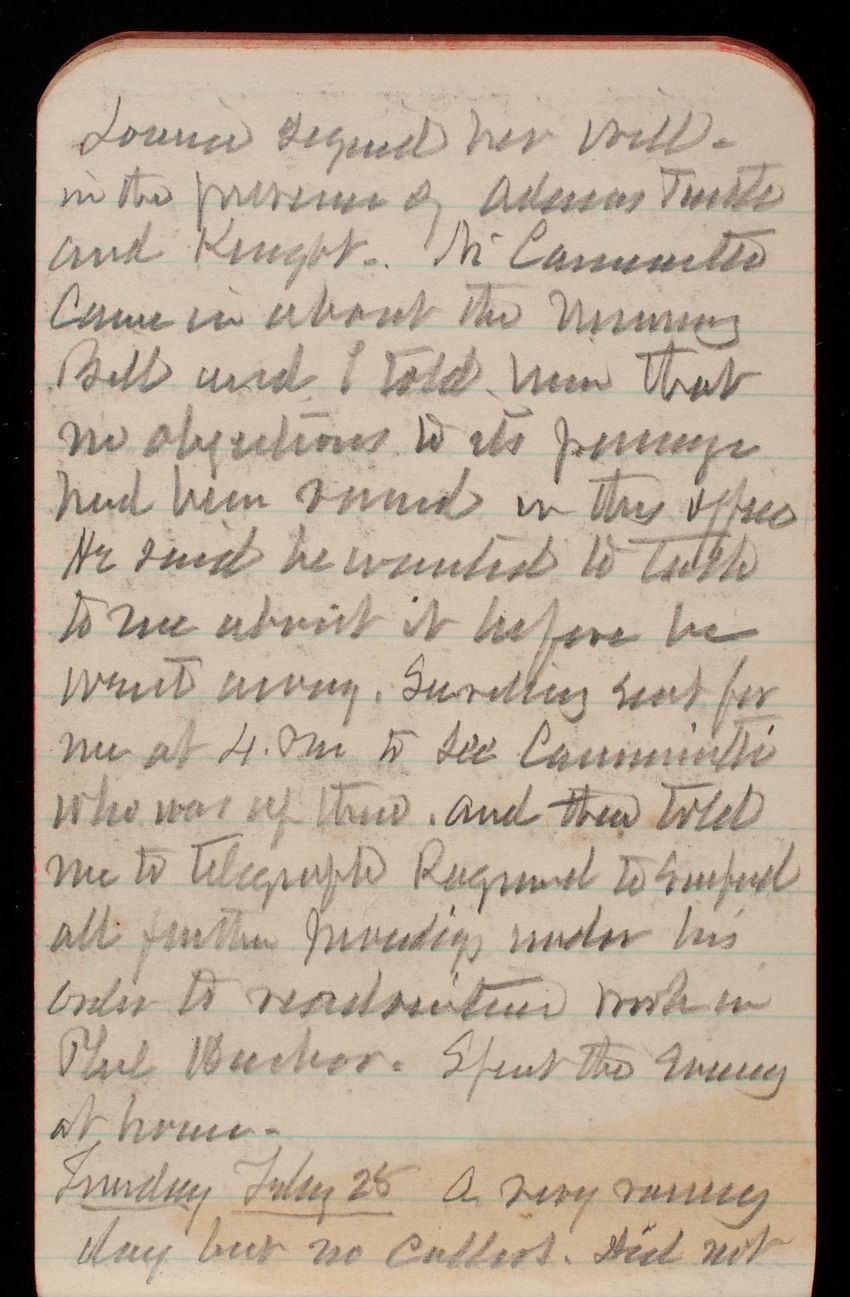 Louise signed her will -
in the presence of Adams Tuttle
and Knight -. Mr Caminetti
Came in about the Mining
Bill and I told him that
no objections to its passage
had been raised in this office
He said he wanted to talk
to me about it before he
went away. sent for
me at 4. Pm to see Caminetti
who was up there. and then told
me to telegraph Raymond to suspend
all further proceedings under his
order to readvertise work in
Phil Harbor. Spent the Evening
at home -
Tuesday July 25 A very rainy
day but no callers. Did not